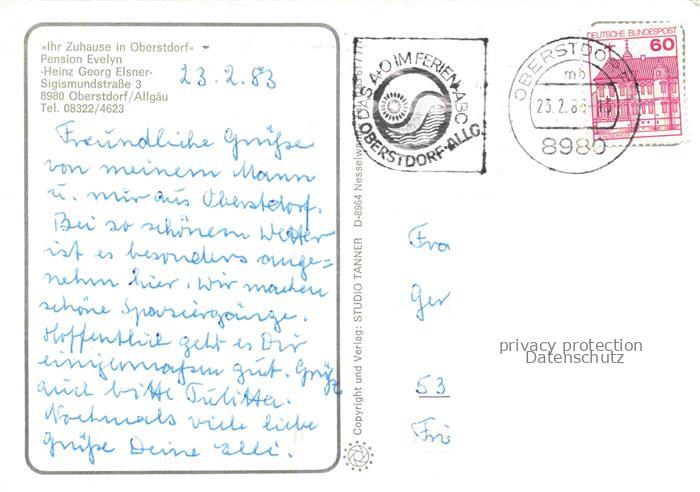 »Ihr Zuhause in Oberstdorf«
Pension Evelyn
-Heinz Georg Elsner-
Sigismundstraße 3
8980 Oberstdorf/Allgäu
Tel. 08322/4623
23.2.83
Freundliche Grüße
von meinem Mann
u. mir aus Oberstdorf.
Bei so schönem Wetter
ist es besonders ange=
nehm hier. Wir machen
schöne Spaziergänge.
Hoffentlich geht es Dir
einigermaßen gut. Grüße
auch bitte Julitta.
Nochmals viele liebe
Grüße Deine Elli.
Copyright und Verlag: STUDIO TANNER D-8964 Nesselwang
DAS A+O IM FERIEN-ABC
OBERSTDORF-ALLG.
OBERSTDORF
mb
23.2.8
8980
DEUTSCHE BUNDESPOST
60
Fra
Ger
53
privacy protection
Datenschutz